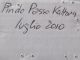 Pin de Passo Kattoni,
luglio 2010